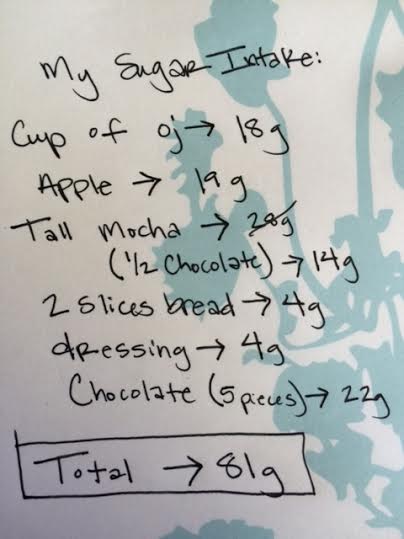 My Sugar Intake:
Cup of oj → 18g
Apple → 19g
Tall Mocha → 28g
(1/2 Chocolate) → 14g
2 slices bread → 4g
dressing → 4g
Chocolate (5 pieces) → 22g
Total → 81g